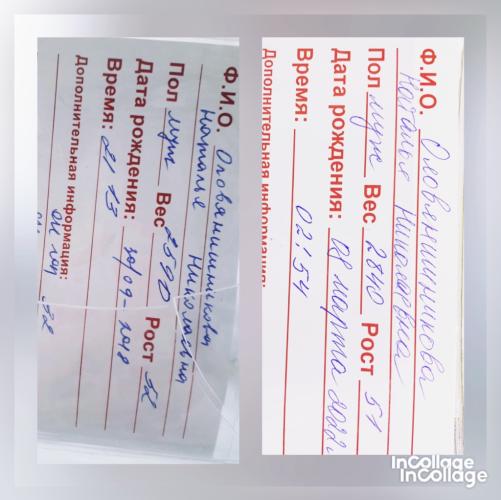 Ф.И.О. Оловянишникова
Наталья Николаевна
Пол муж Вес 2590 Рост 52
Дата рождения: 30/09-2018
Время: 21 13
Дополнительная информация:
Ф.И.О. Оловянишникова
Наталья Николаевна
Пол муж Вес 2840 Рост 51
Дата рождения: 08 марта 2022г
Время: 02:54
Дополнительная информация:
InCollage
InCollage